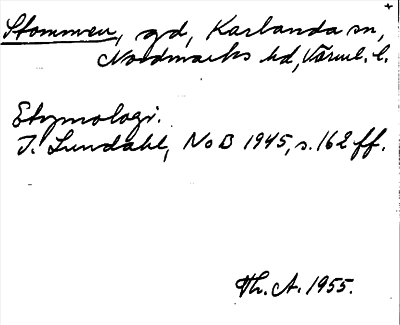 Stommen, gd, Karlanda sn,
Nordmarks hd, Värml. l.
Etymologi.
I. Lundahl, NoB 1945, s. 162 ff.
Th. A. 1955.